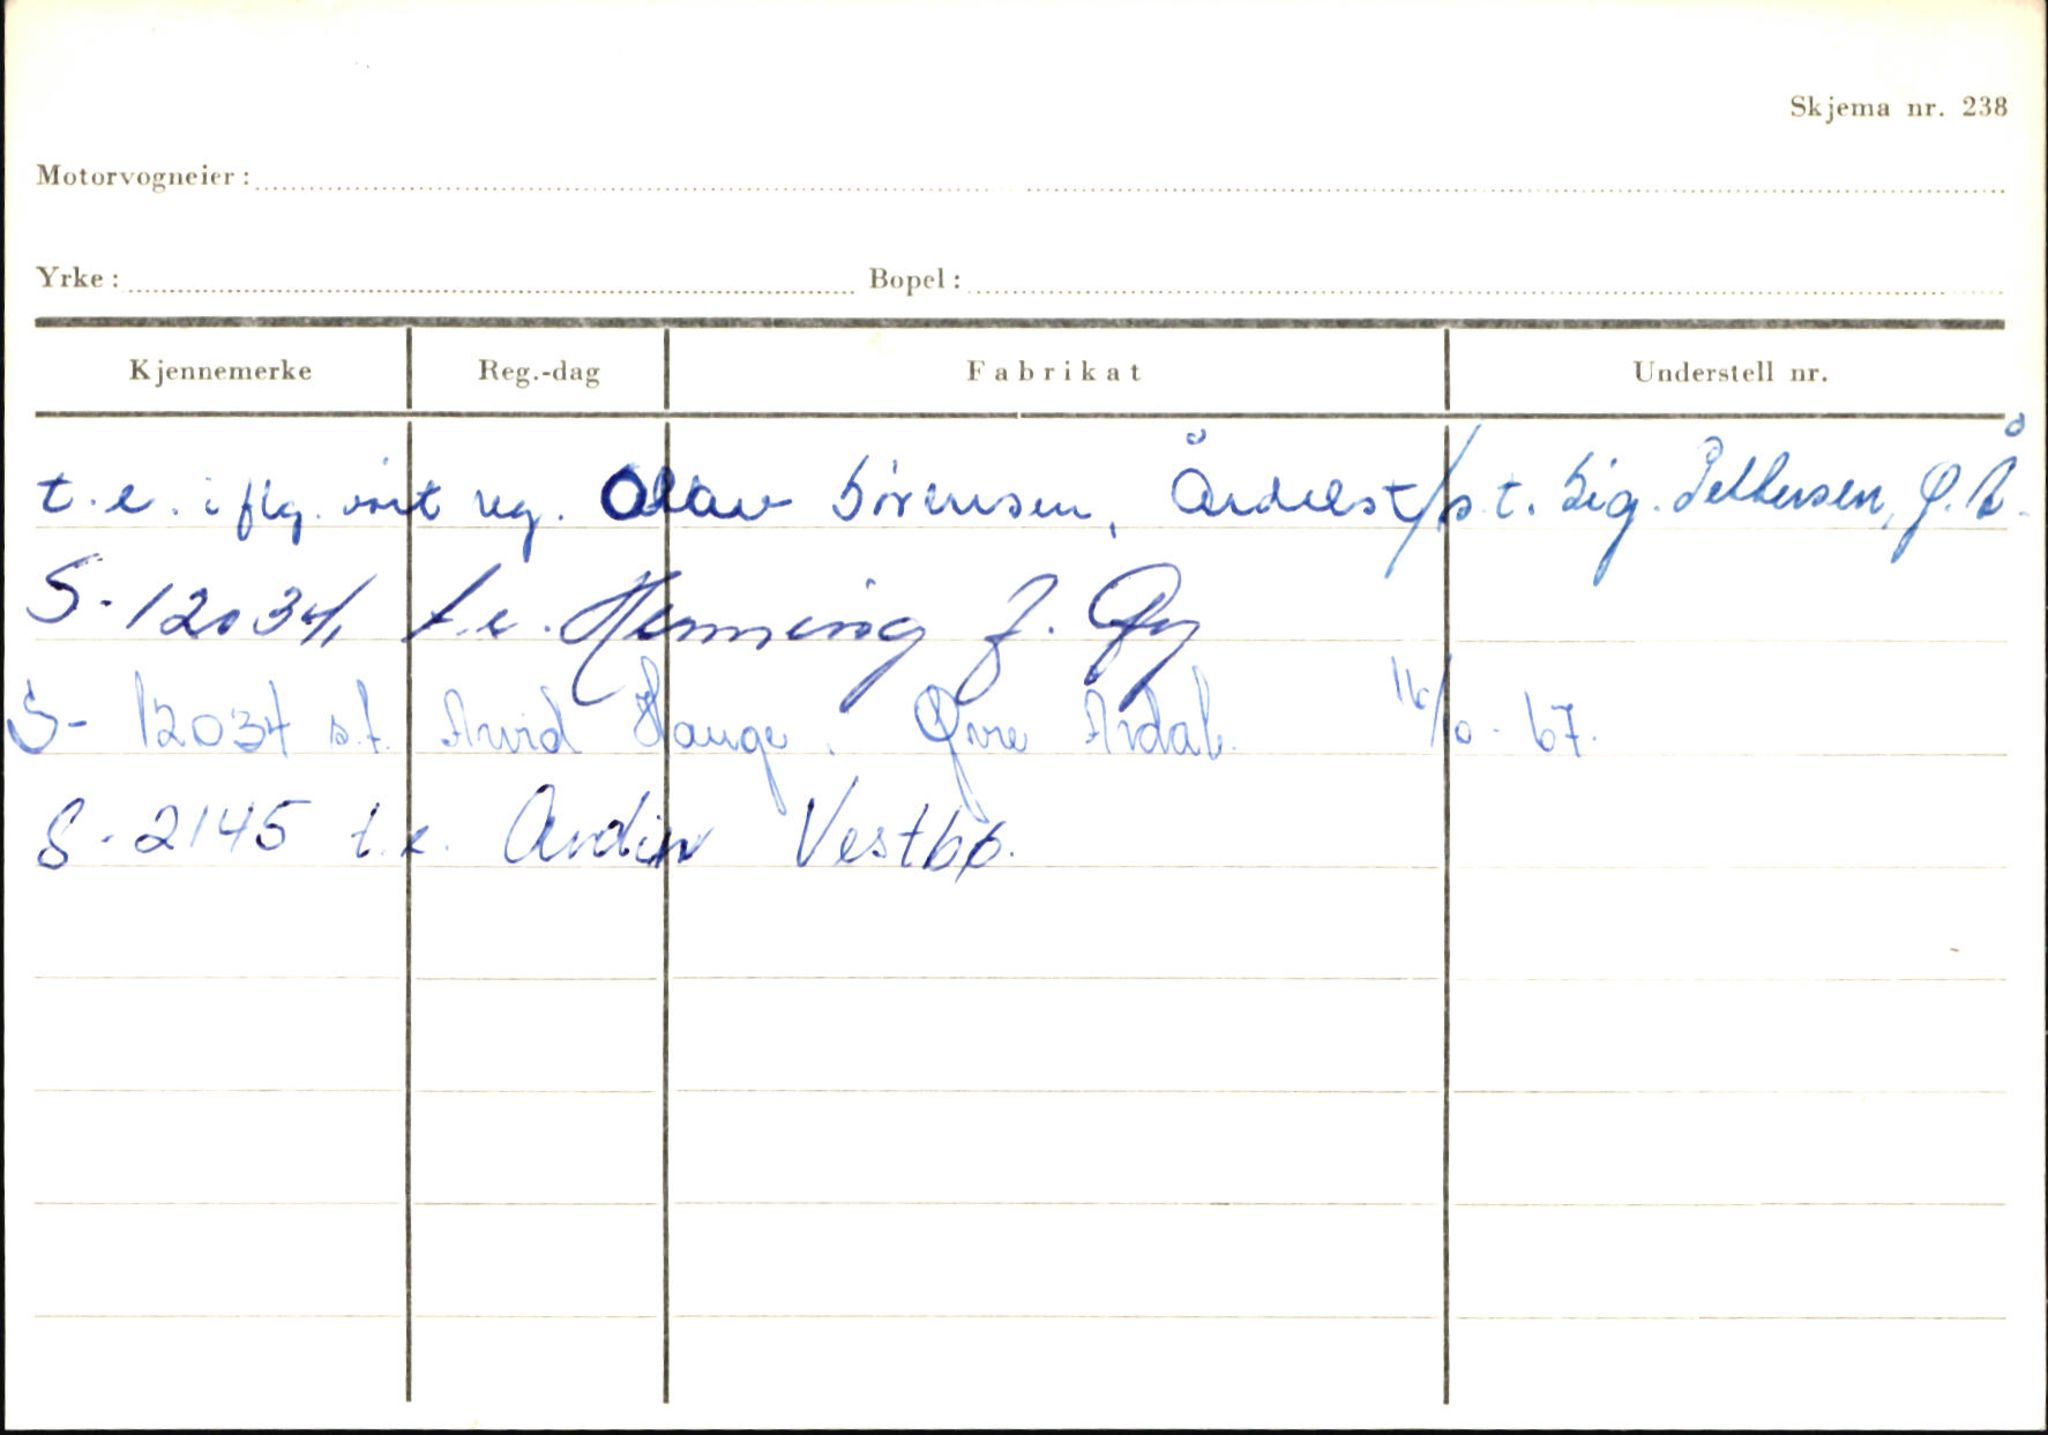 Skjema nr. 238
Motorvogneier:
Yrke: Bopel:
Kjennemerke Reg.-dag Fabrikat Understell nr.
t.e. iflg. vårt reg. Olav Sörensen, Årdalst/s.t. Sig. Pettersen, Ø.Å.
S-12034, t.e. Henning J. Øy
S-12034 s.t. Arvid Hauge. Øvre Årdal. 16/10-67.
S-2145 t.e. Andin Vestbø.